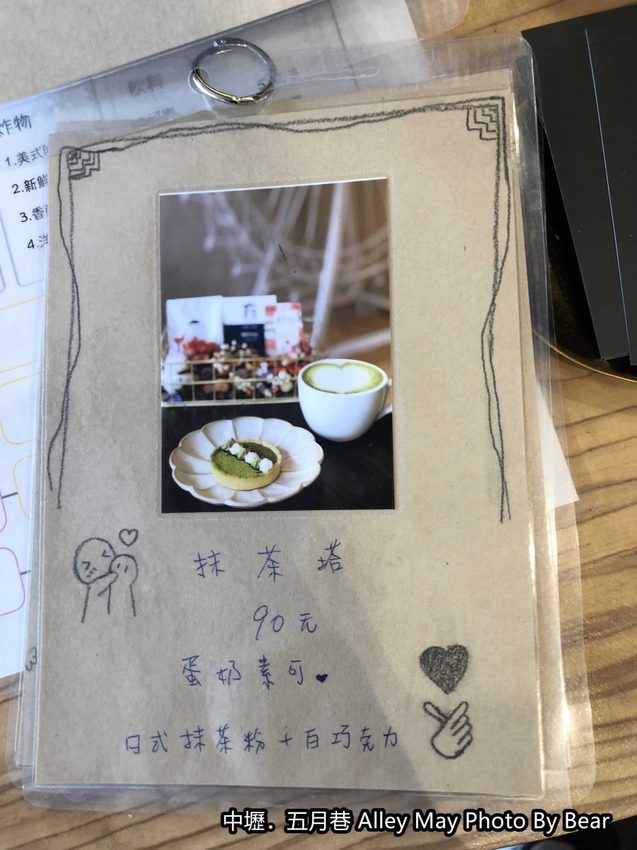 飲料
炸物
1.美式
2.新鮮
3.香
4.
抹茶塔
90元
蛋奶素可
日式抹茶粉+白巧克力
中壢．五月巷 Alley May Photo By Bear